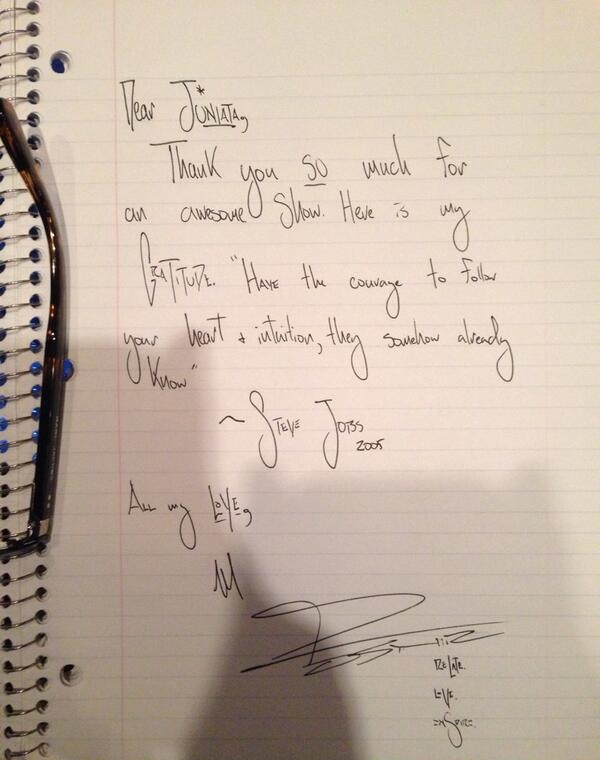 Dear Juniata,
Thank you so much for
an awesome show. Here is my
GRATITUDE. "Have the courage to follow
your heart + intuition, they somehow already
know"
~ Steve Jobs
2005
All my LOVE,
M
RELATE.
LOVE.
INSPIRE.